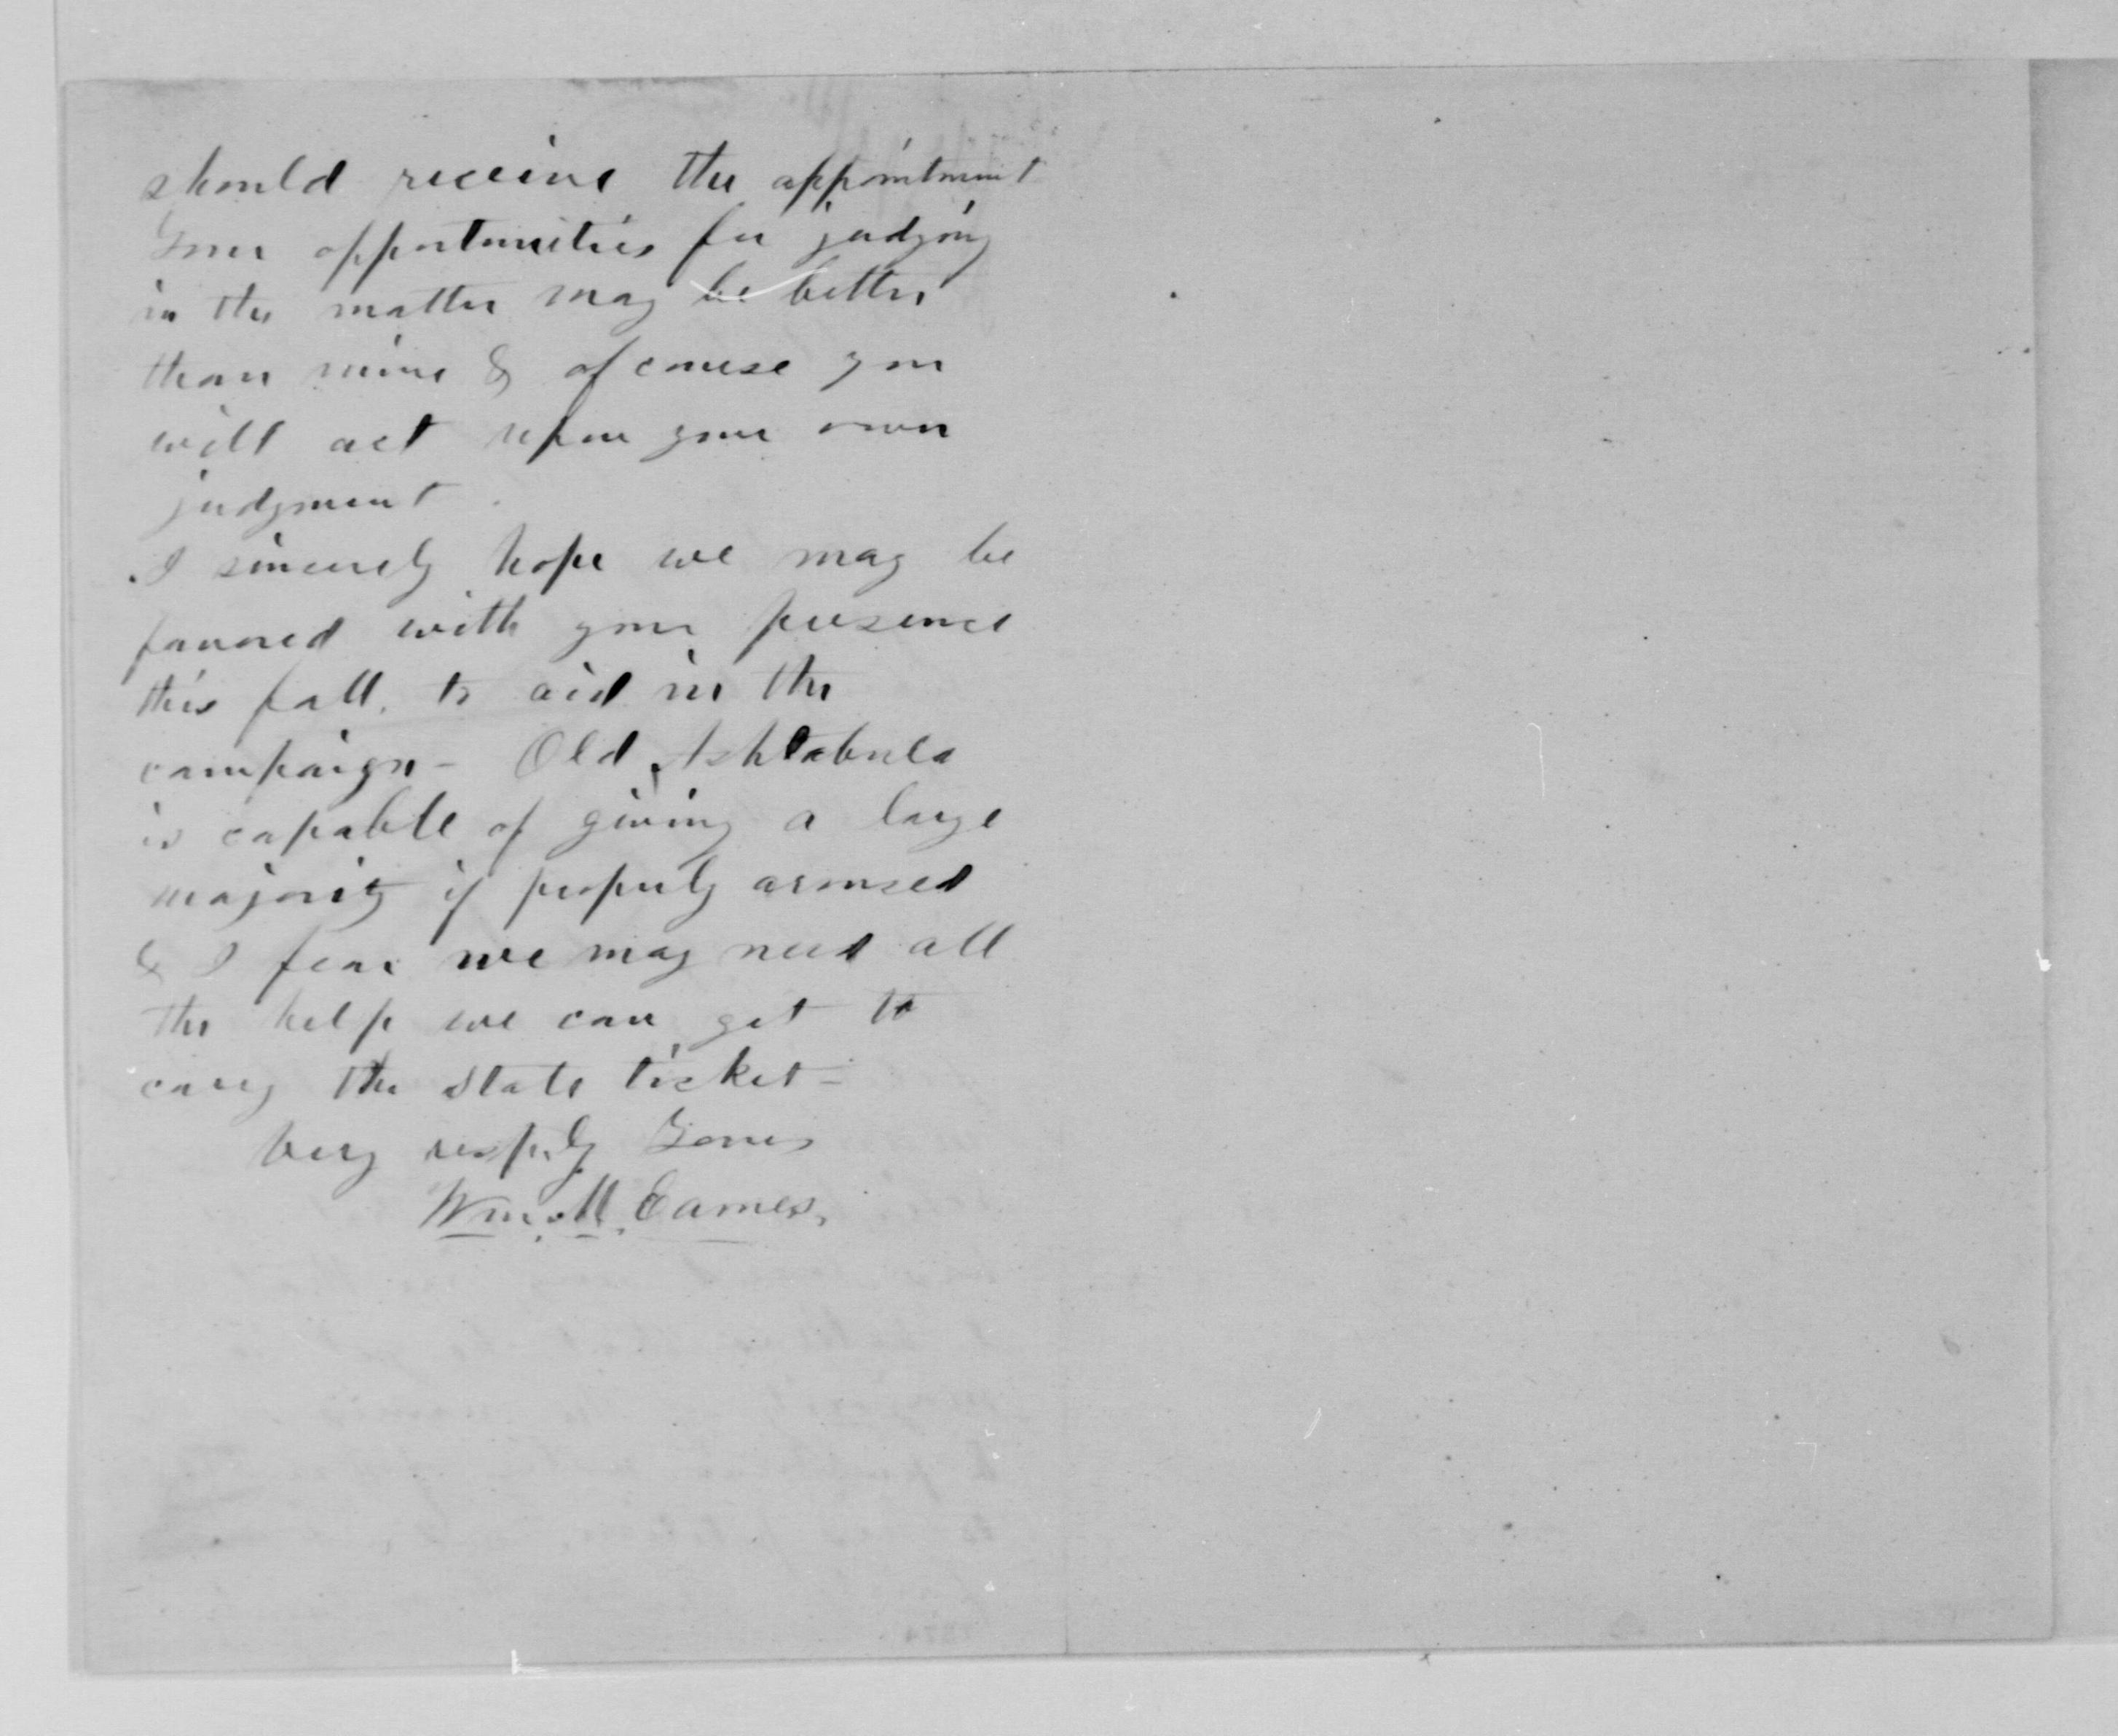 should receive the appointment
Your opportunities for judging
in the matter may be better
than mine & of course you
will act upon your own
judgment.
I sincerely hope we may be
favored with your presence
this fall. to aid in the
campaign - Old Ashtabula
is capable of giving a large
majority if properly aroused
& I fear we may need all
the help we can get to
carry the State ticket -
Very resply Yours
Wm. M. Eames,